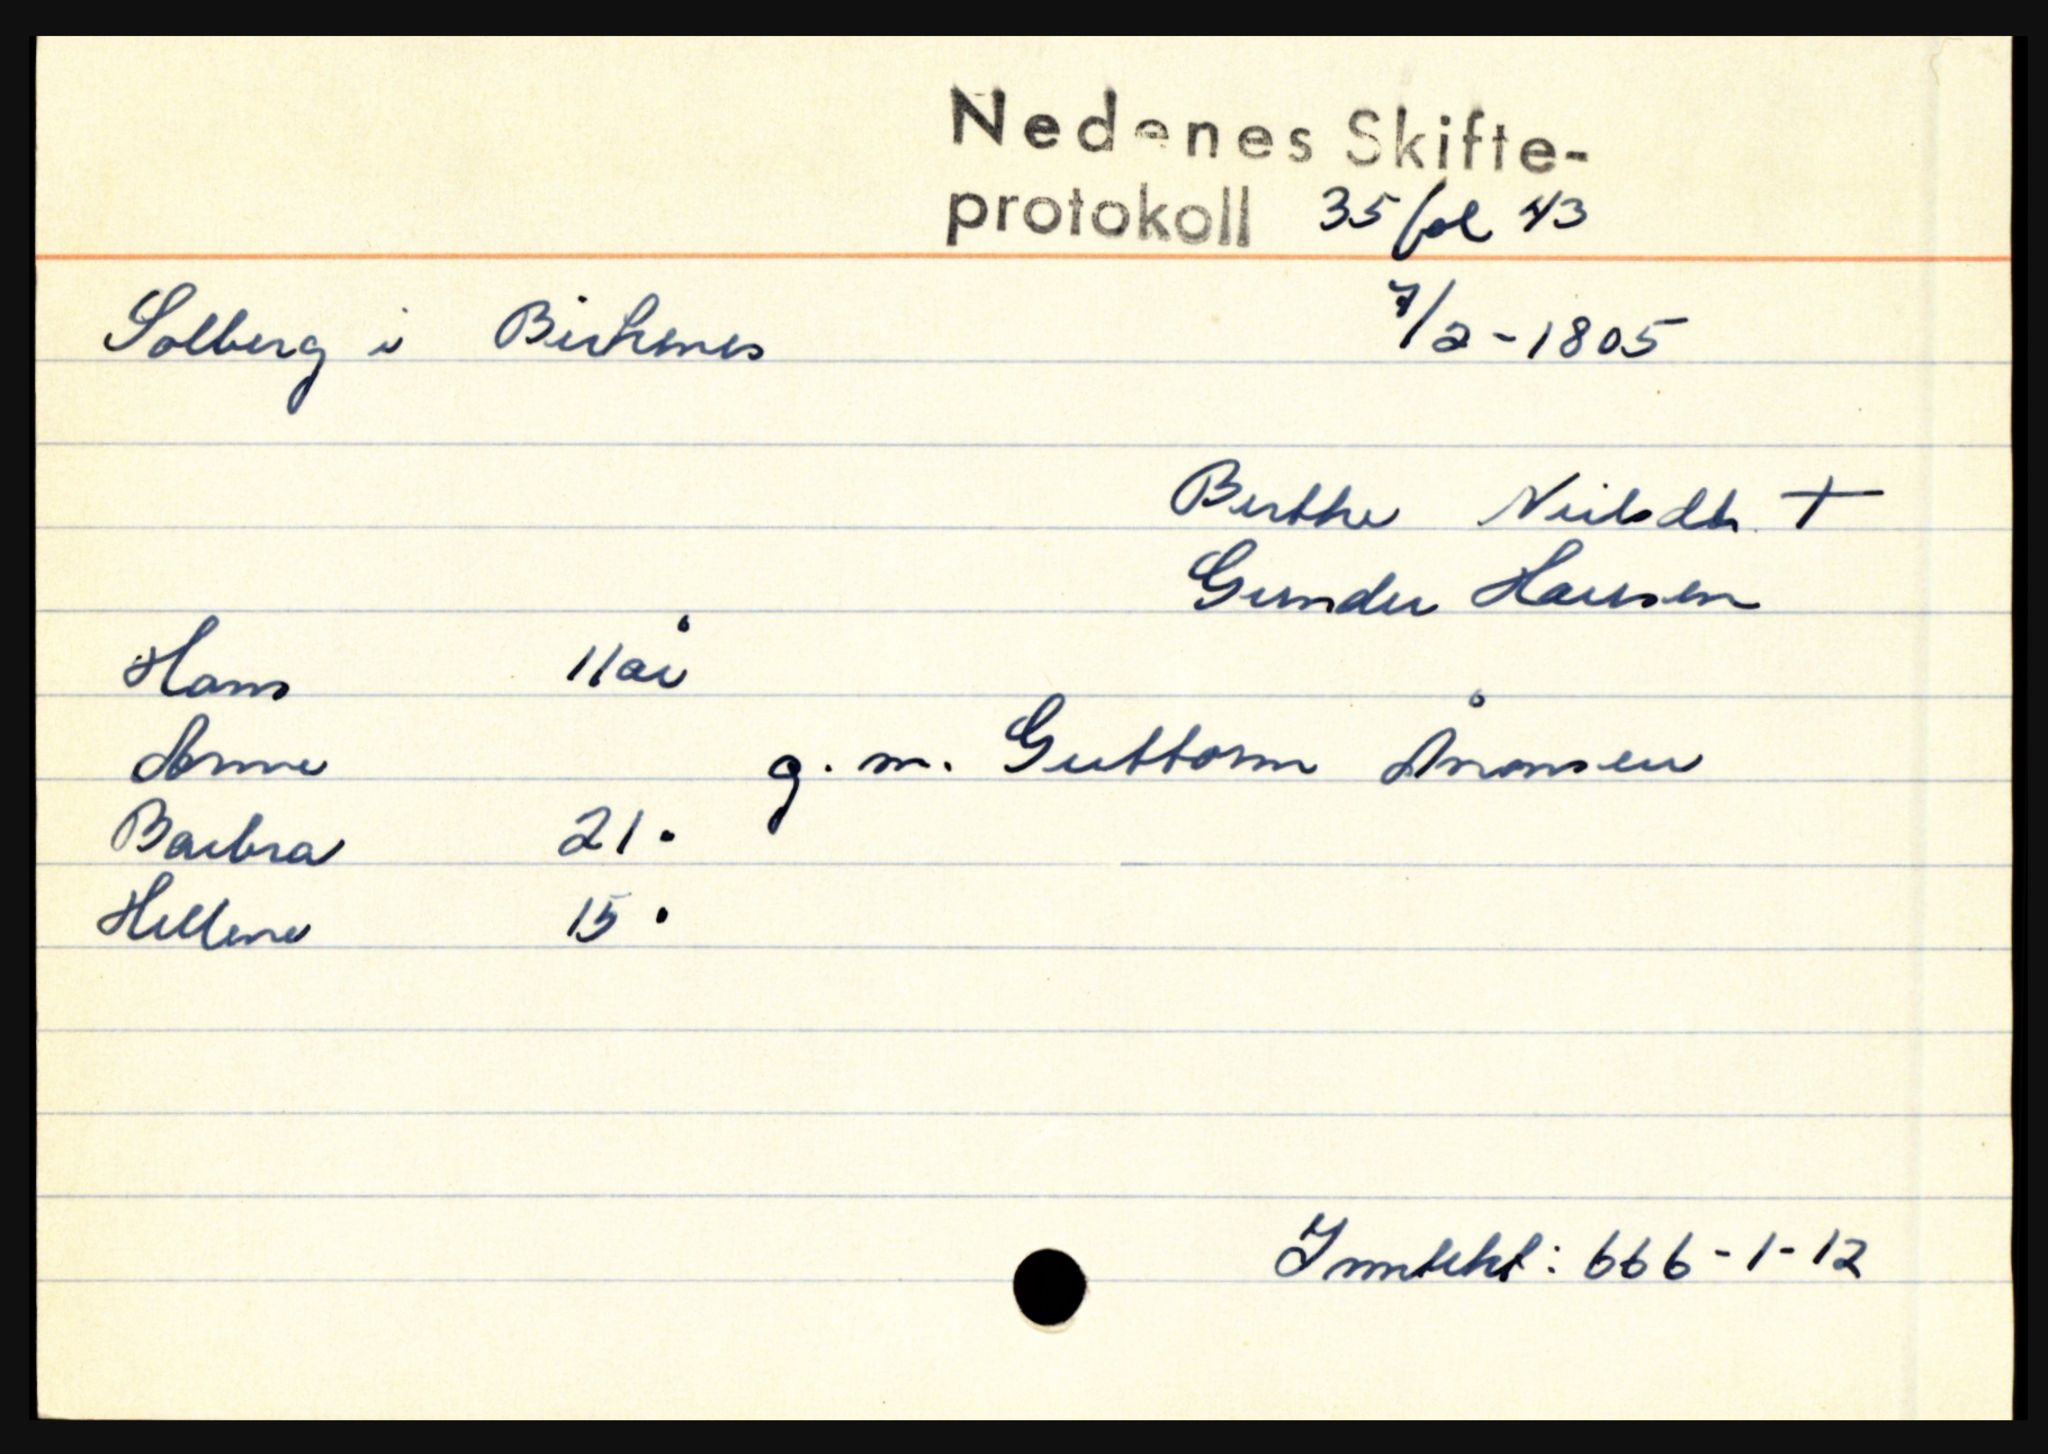 Nedenes Skifte-
protokoll 35 fol 43
Solberg i Birkenes 7/2-1805
Berthe Neilsdtr. †
Gunder Hansen
Hans 11 år
Anne g. m. Guttorm Ånonsen
Barbra 21 •
Hellene 15 •
Inntekt: 666-1-12